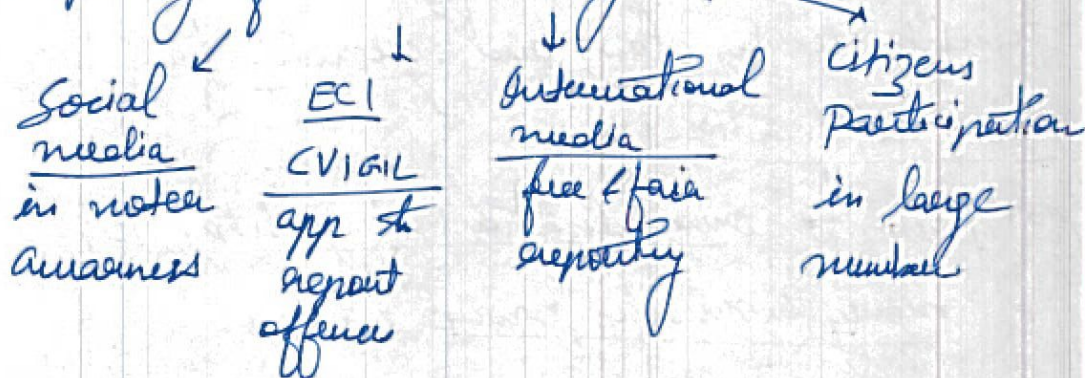 Social
media
in voter
awarness
ECI
CVIGIL
app to
report
offences
International
media
free & fair
reporting
Citizens
Participation
in large
number